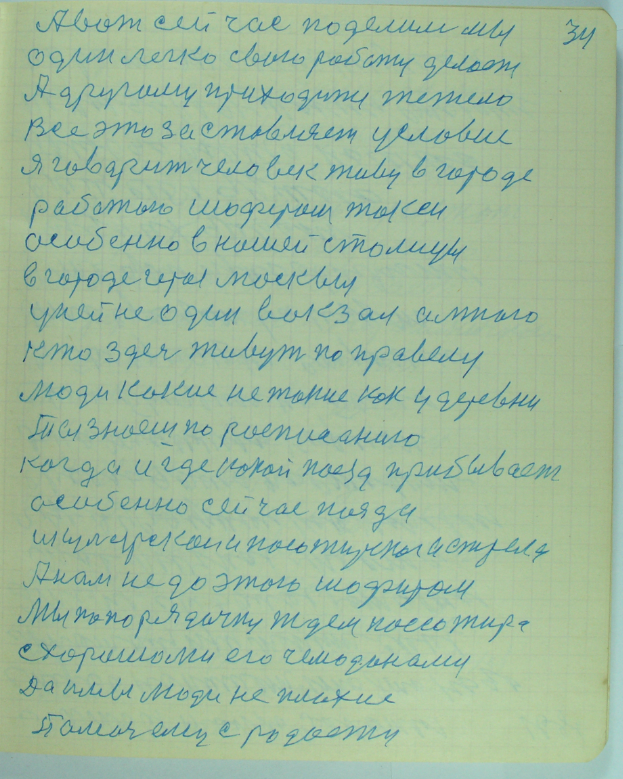 34
А вот сей час поделим мы
один легко свою работу делает
А другому приходити тежело
Все это заставляет условие
я говарит человек живу в городе
работою шофиром такси
особенно в нашей столицы
в городе герои москвы
у ней не один вокзал а много
кто здеч живут по правелу
люди какие не такие как у деревни
Там знаем по росписанию
когда и где какой поезд прибывает
особенно сей час поязда
и стрела
А нам не до этого шофиром
Мы по порядочку ждем поссожира
с хорошоми его чемоданами
Да и мы люди не плохие
Помочему с радости